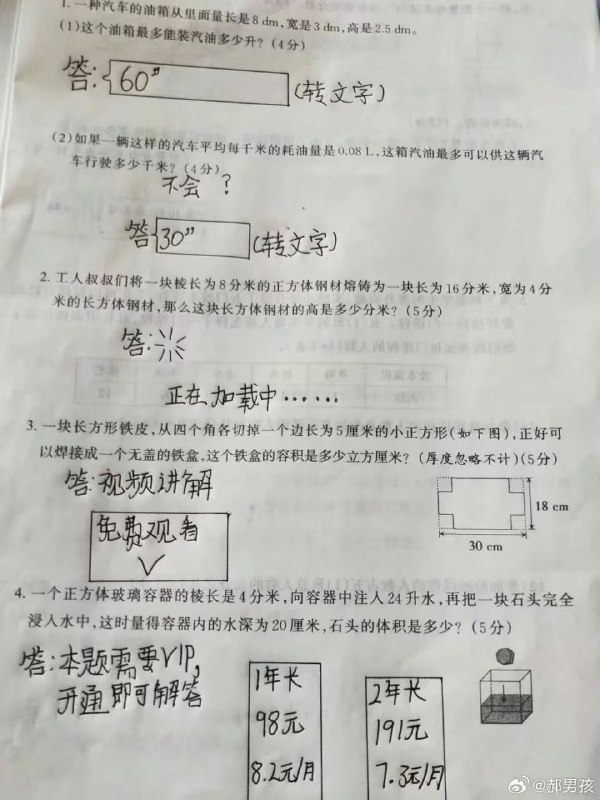 1. 一种汽车的油箱从里面量长是8 dm,宽是3 dm,高是2.5 dm。
(1)这个油箱最多能装汽油多少升?(4分)
答:{60" (转文字)
(2)如果一辆这样的汽车平均每千米的耗油量是0.08 L,这箱汽油最多可以供这辆汽
车行驶多少千米?(4分)
不会?
答{30" (转文字)
2. 工人叔叔们将一块棱长为8分米的正方体钢材熔铸为一块长为16分米,宽为4分
米的长方体钢材,那么这块长方体钢材的高是多少分米?(5分)
答:
正在加载中……
3. 一块长方形铁皮,从四个角各切掉一个边长为5厘米的小正方形(如下图),正好可
以焊接成一个无盖的铁盒,这个铁盒的容积是多少立方厘米?(厚度忽略不计)(5分)
答:视频讲解
免费观看
18 cm
30 cm
4. 一个正方体玻璃容器的棱长是4分米,向容器中注入24升水,再把一块石头完全
浸入水中,这时量得容器内的水深为20厘米,石头的体积是多少?(5分)
答:本题需要VIP,
开通即可解答
1年长
98元
8.2元/月
2年长
191元
7.3元/月
@郝男孩